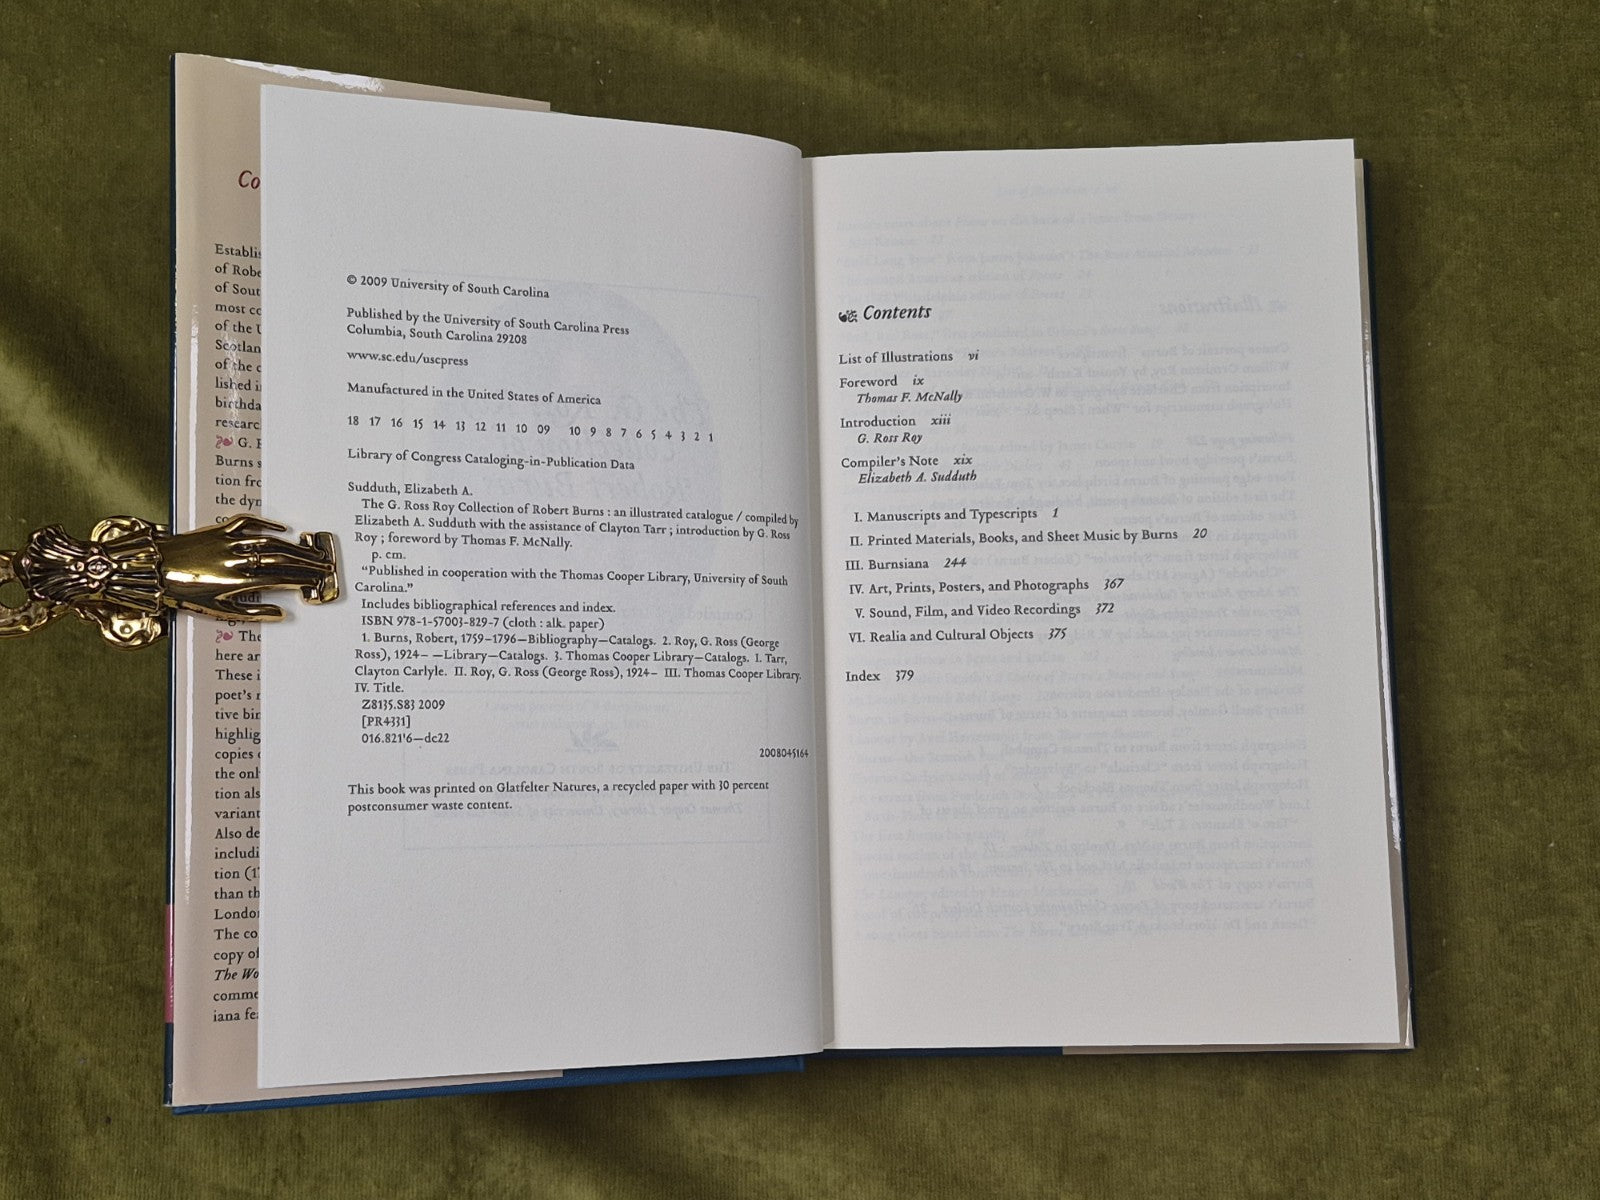 Co
Establis
of Robe
of Sout
most co
of the U
Scotlan
of the c
lished i
birthda
researc
G. R
Burns s
tion fro
the dyn
The
here ar
These i
poet's r
tive bin
highlig
copies
the onl
tion als
variant
Also de
includi
tion (1
than th
Londo
The co
copy of
The Wo
comme
iana fe
© 2009 University of South Carolina
Published by the University of South Carolina Press
Columbia, South Carolina 29208
www.sc.edu/uscpress
Manufactured in the United States of America
18 17 16 15 14 13 12 11 10 09 10 9 8 7 6 5 4 3 2 1
Library of Congress Cataloging-in-Publication Data
Sudduth, Elizabeth A.
The G. Ross Roy Collection of Robert Burns : an illustrated catalogue / compiled by
Elizabeth A. Sudduth with the assistance of Clayton Tarr ; introduction by G. Ross
Roy ; foreword by Thomas F. McNally.
p. cm.
"Published in cooperation with the Thomas Cooper Library, University of South
Carolina."
Includes bibliographical references and index.
ISBN 978-1-57003-829-7 (cloth : alk. paper)
1. Burns, Robert, 1759–1796—Bibliography—Catalogs. 2. Roy, G. Ross (George
Ross), 1924– —Library—Catalogs. 3. Thomas Cooper Library—Catalogs. I. Tarr,
Clayton Carlyle. II. Roy, G. Ross (George Ross), 1924– III. Thomas Cooper Library.
IV. Title.
Z8135.S83 2009
[PR4331]
016.821'6—dc22
2008045164
This book was printed on Glatfelter Natures, a recycled paper with 30 percent
postconsumer waste content.
Contents
List of Illustrations vi
Foreword ix
Thomas F. McNally
Introduction xiii
G. Ross Roy
Compiler's Note xix
Elizabeth A. Sudduth
I. Manuscripts and Typescripts 1
II. Printed Materials, Books, and Sheet Music by Burns 20
III. Burnsiana 244
IV. Art, Prints, Posters, and Photographs 367
V. Sound, Film, and Video Recordings 372
VI. Realia and Cultural Objects 375
Index 379